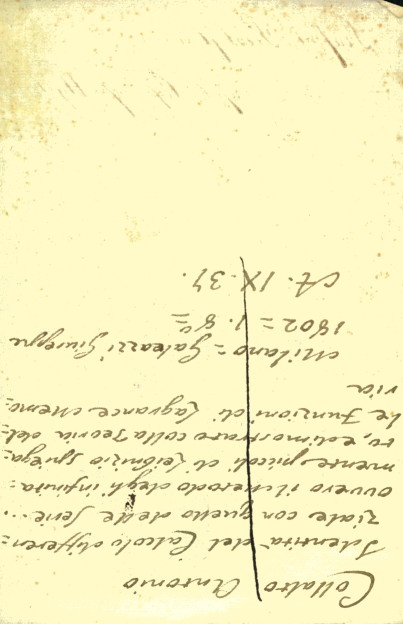 Collalto Antonio
Identità del Calcolo differen=
ziale con quello delle Serie...
ovvero il metodo degli infinita=
mente piccoli di Leibnizio spiega=
to, e dimostrato colla Teoria del=
le Funzioni di Lagrance. Memo=
ria
Milano = Galeazzi Giuseppe
1802 = 1. 8º=
A. IX. 34.